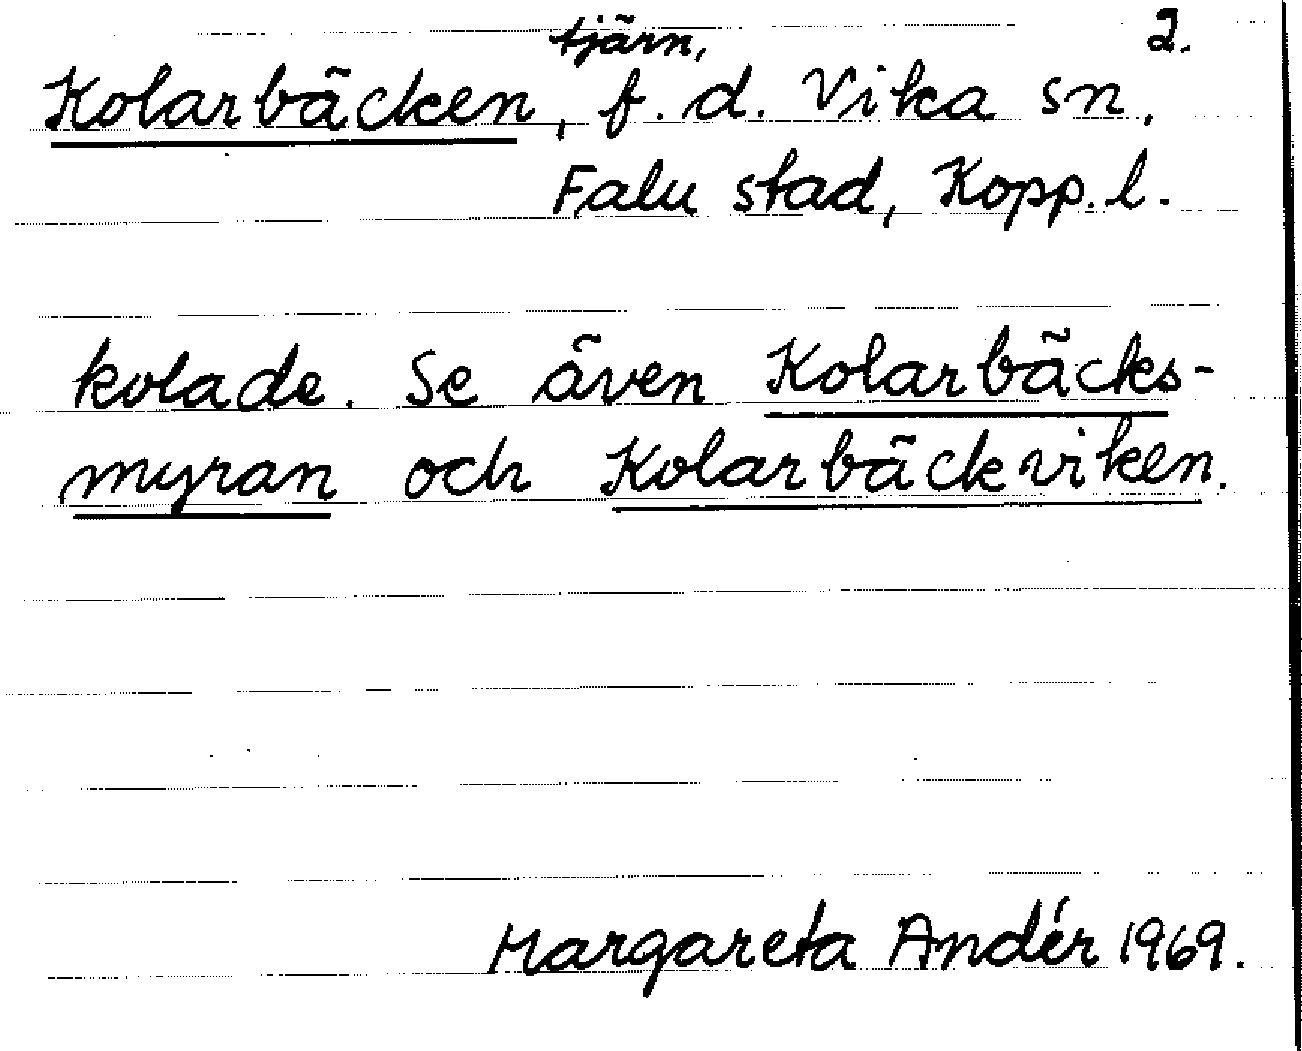 tjärn, 2.
Kolarbäcken, f. d. Vika sn,
Falu stad, Kopp. l.
kolade. Se även Kolarbäcks-
myran och Kolarbäckviken.
Margareta Andér 1969.